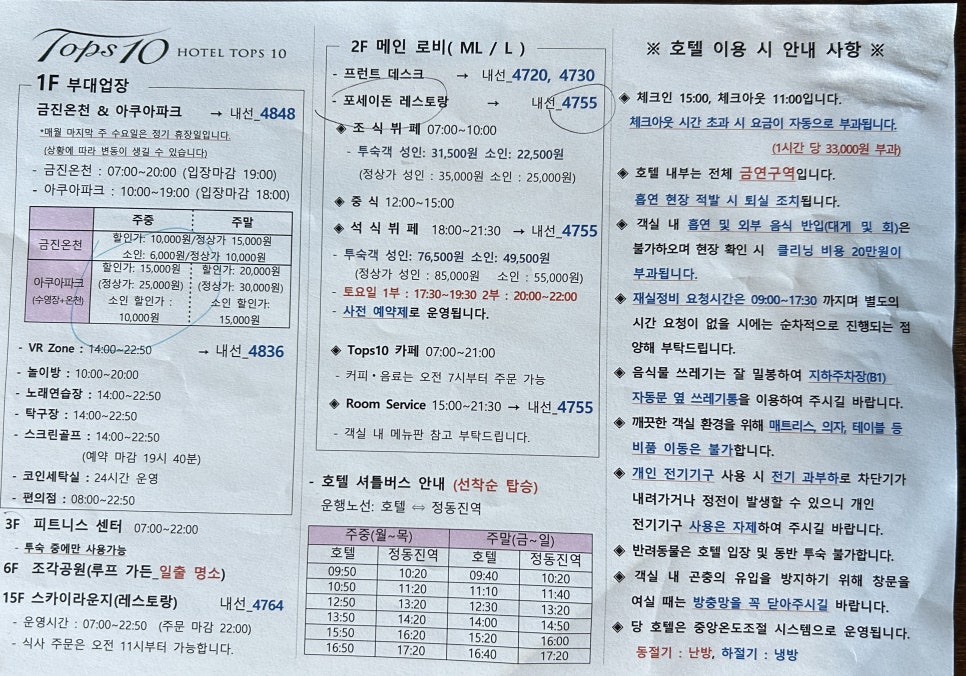 Tops10 HOTEL TOPS 10
1F 부대업장
금진온천 & 아쿠아파크 → 내선_4848
*매월 마지막 주 수요일은 정기 휴장일입니다.
(상황에 따라 변동이 생길 수 있습니다)
- 금진온천 : 07:00~20:00 (입장마감 19:00)
- 아쿠아파크 : 10:00~19:00 (입장마감 18:00)
주중 주말
금진온천 할인가: 10,000원/정상가 15,000원
소인: 6,000원/정상가 10,000원
아쿠아파크 (수영장+온천)
할인가: 15,000원 할인가: 20,000원
(정상가: 25,000원) (정상가: 30,000원)
소인 할인가 : 소인 할인가:
10,000원 15,000원
- VR Zone : 14:00~22:50 → 내선_4836
- 놀이방 : 10:00~20:00
- 노래연습장 : 14:00~22:50
- 탁구장 : 14:00~22:50
- 스크린골프 : 14:00~22:50
(예약 마감 19시 40분)
- 코인세탁실 : 24시간 운영
- 편의점 : 08:00~22:50
3F 피트니스 센터 07:00~22:00
- 투숙 중에만 사용가능
6F 조각공원(루프 가든_일출 명소)
15F 스카이라운지(레스토랑) 내선_4764
- 운영시간 : 07:00~22:50 (주문 마감 22:00)
- 식사 주문은 오전 11시부터 가능합니다.
2F 메인 로비( ML / L )
- 프런트 데스크 → 내선_4720, 4730
- 포세이돈 레스토랑 → 내선_4755
◈ 조 식 뷔 페 07:00~10:00
- 투숙객 성인: 31,500원 소인: 22,500원
(정상가 성인 : 35,000원 소인 : 25,000원)
◈ 중 식 12:00~15:00
◈ 석 식 뷔 페 18:00~21:30 → 내선_4755
- 투숙객 성인: 76,500원 소인: 49,500원
(정상가 성인 : 85,000원 소인 : 55,000원)
- 토요일 1부 : 17:30~19:30 2부 : 20:00~22:00
- 사전 예약제로 운영됩니다.
◈ Tops10 카페 07:00~21:00
- 커피・음료는 오전 7시부터 주문 가능
◈ Room Service 15:00~21:30 → 내선_4755
- 객실 내 메뉴판 참고 부탁드립니다.
- 호텔 셔틀버스 안내 (선착순 탑승)
운행노선: 호텔 ⇔ 정동진역
주중(월~목) 주말(금~일)
호텔 정동진역 호텔 정동진역
09:50 10:20 09:40 10:20
10:50 11:20 11:10 11:40
12:50 13:20 12:30 13:20
13:50 14:20 14:00 14:50
15:50 16:20 15:20 16:00
16:50 17:20 16:40 17:20
※ 호텔 이용 시 안내 사항 ※
◈ 체크인 15:00, 체크아웃 11:00입니다.
체크아웃 시간 초과 시 요금이 자동으로 부과됩니다.
(1시간 당 33,000원 부과)
◈ 호텔 내부는 전체 금연구역입니다.
흡연 현장 적발 시 퇴실 조치됩니다.
◈ 객실 내 흡연 및 외부 음식 반입(대게 및 회)은
불가하오며 현장 확인 시 클리닝 비용 20만원이
부과됩니다.
◈ 재실정비 요청시간은 09:00~17:30 까지며 별도의
시간 요청이 없을 시에는 순차적으로 진행되는 점
양해 부탁드립니다.
◈ 음식물 쓰레기는 잘 밀봉하여 지하주차장(B1)
자동문 옆 쓰레기통을 이용하여 주시길 바랍니다.
◈ 깨끗한 객실 환경을 위해 매트리스, 의자, 테이블 등
비품 이동은 불가합니다.
◈ 개인 전기기구 사용 시 전기 과부하로 차단기가
내려가거나 정전이 발생할 수 있으니 개인
전기기구 사용은 자제하여 주시길 바랍니다.
◈ 반려동물은 호텔 입장 및 동반 투숙 불가합니다.
◈ 객실 내 곤충의 유입을 방지하기 위해 창문을
여실 때는 방충망을 꼭 닫아주시길 바랍니다.
◈ 당 호텔은 중앙온도조절 시스템으로 운영됩니다.
동절기 : 난방, 하절기 : 냉방